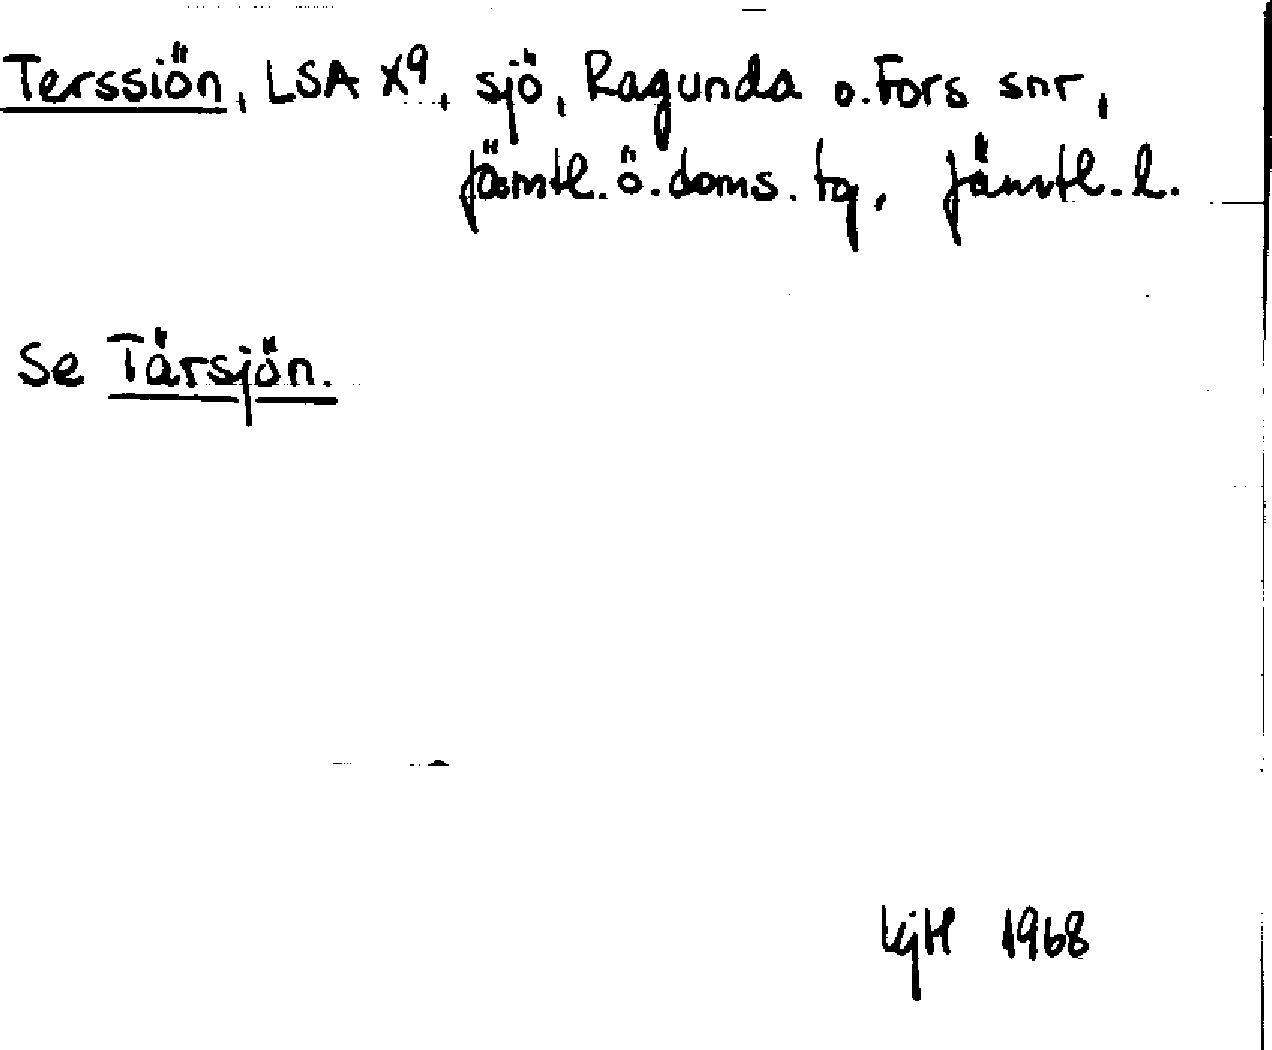 Terssiön, LSA X9, sjö, Ragunda o. Fors snr,
Jämtl. ö. doms. tg, Jämtl. l.
Se Tärsjön.
KjH 1968